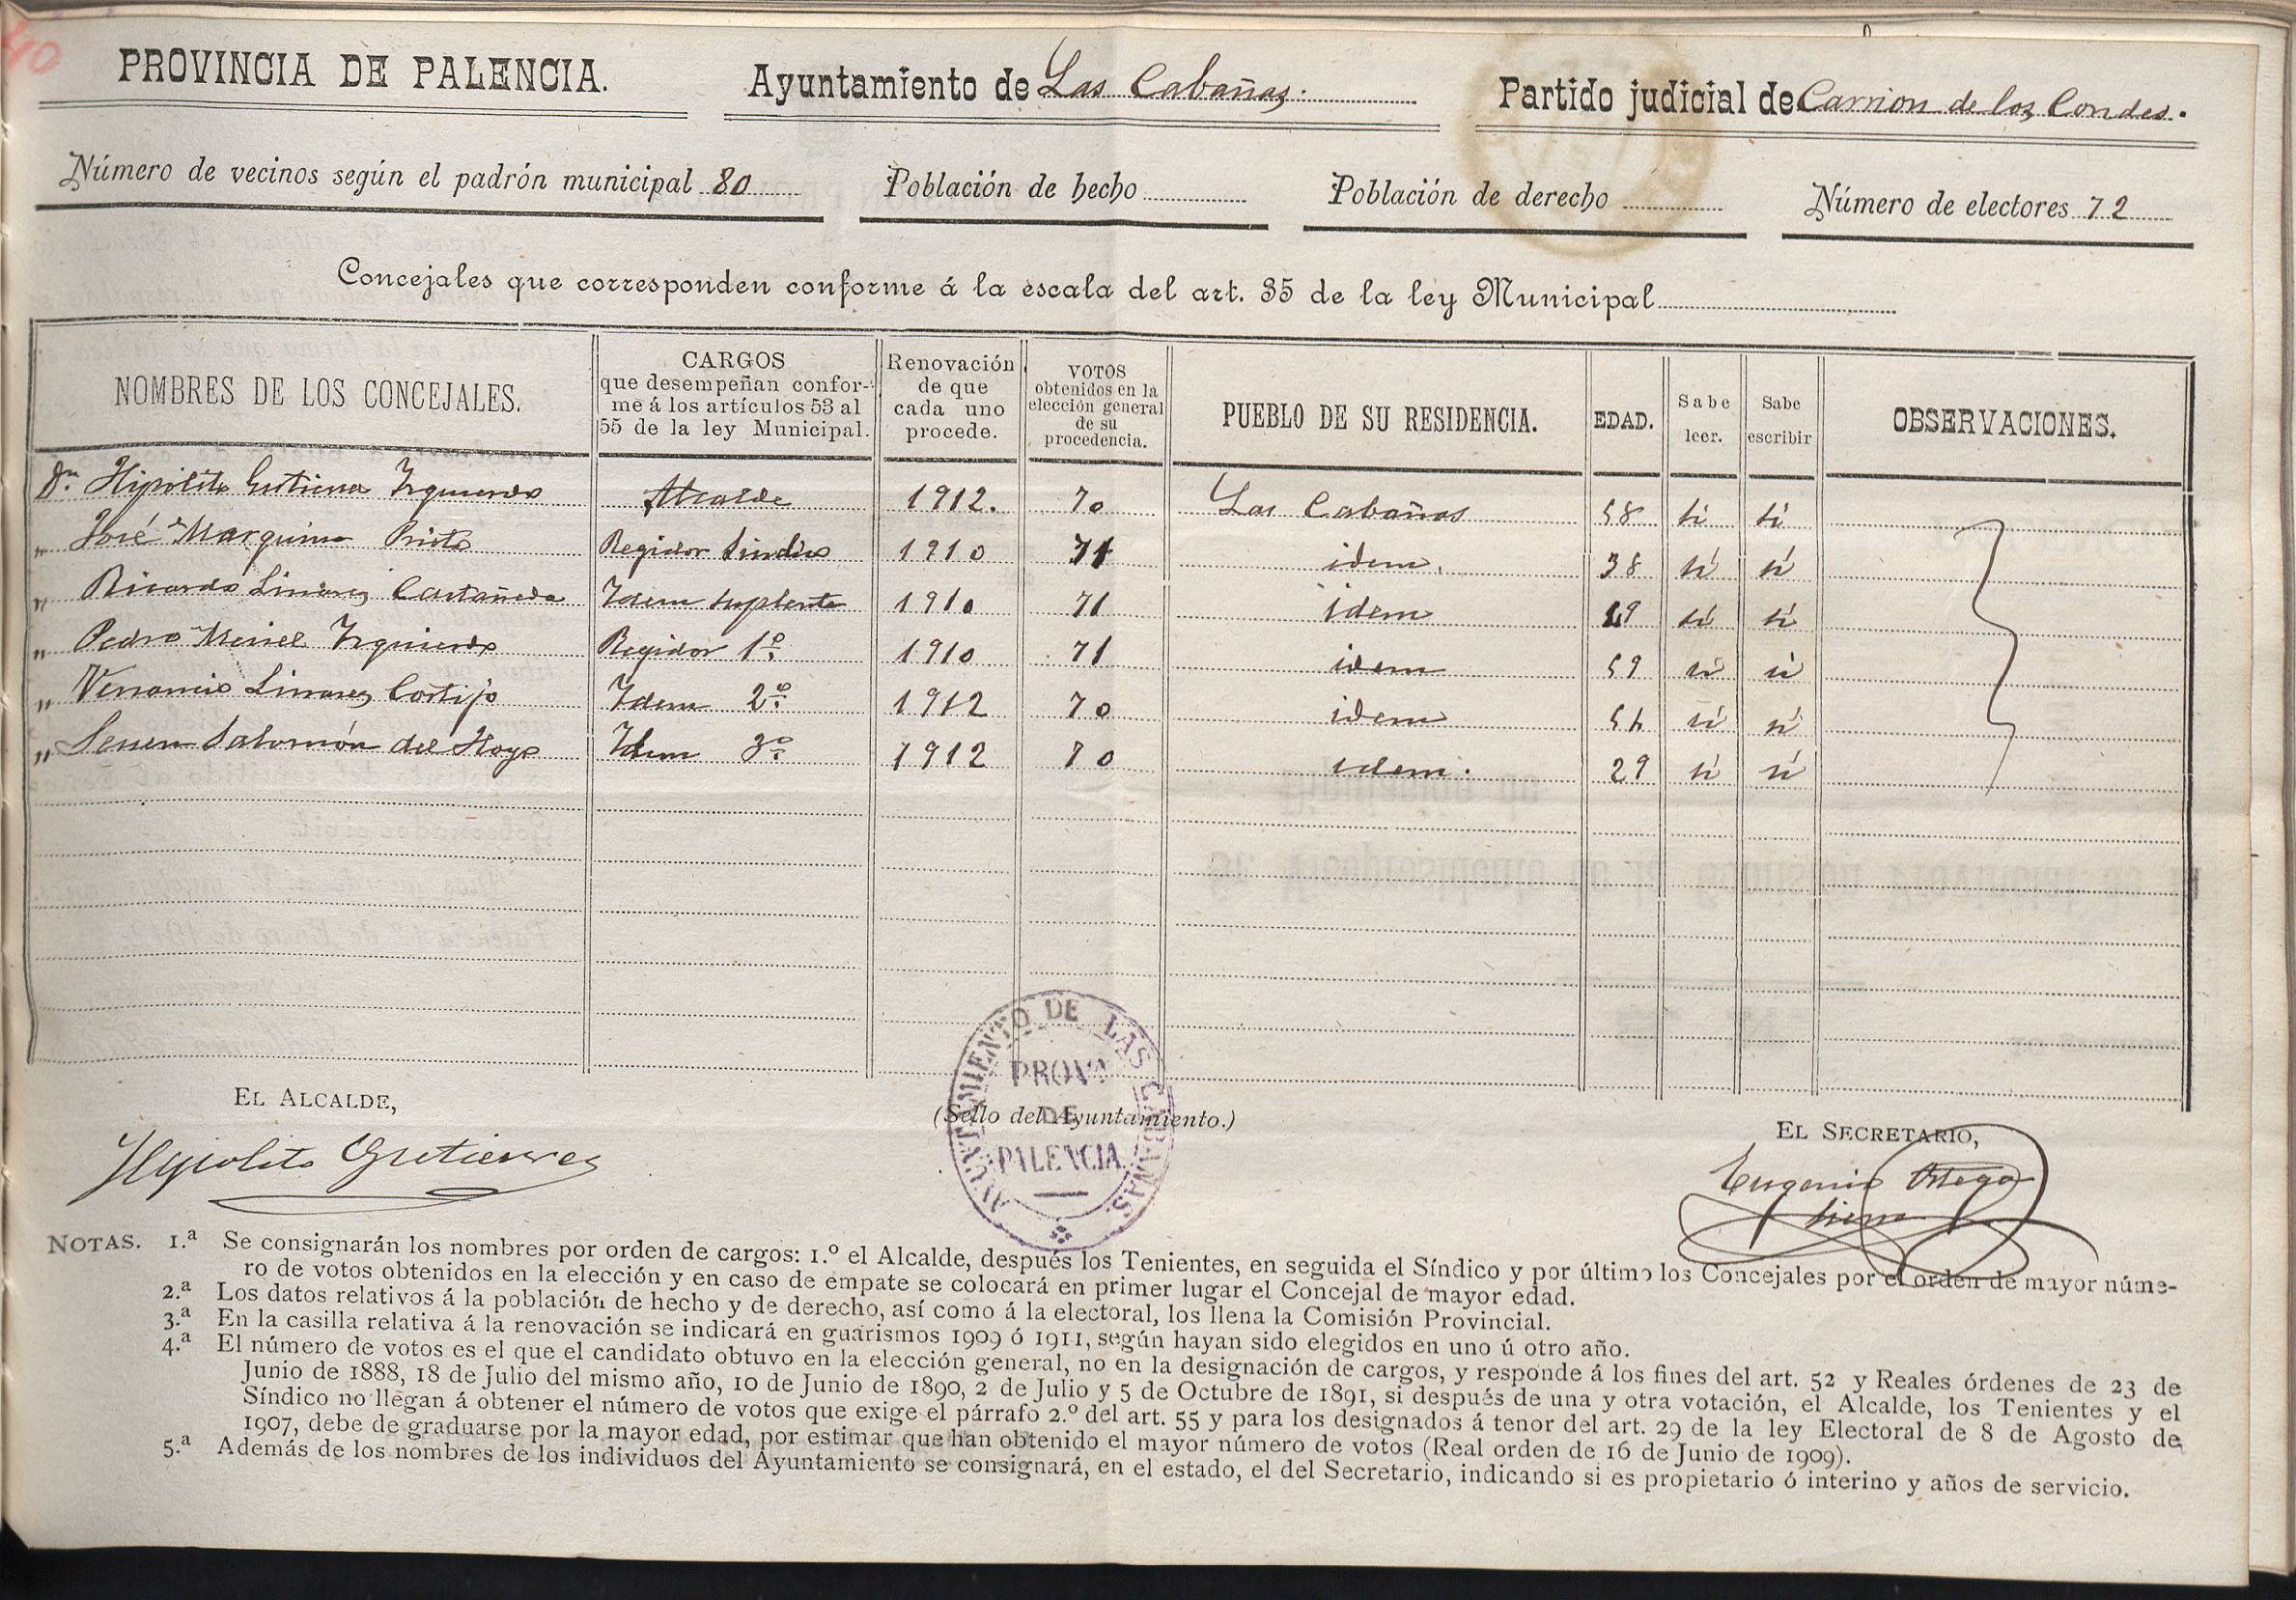 40
PROVINCIA DE PALENCIA. Ayuntamiento de Las Cabañas. Partido judicial de Carrion de los Condes.
Número de vecinos según el padrón municipal 80 Población de hecho Población de derecho Número de electores 72
Concejales que corresponden conforme á la escala del art. 35 de la ley Municipal
NOMBRES DE LOS CONCEJALES. CARGOS que desempeñan conforme á los artículos 53 al 55 de la ley Municipal. Renovación de que cada uno procede. VOTOS obtenidos en la elección general de su procedencia. PUEBLO DE SU RESIDENCIA. EDAD. Sabe leer. Sabe escribir OBSERVACIONES.
Dn. Hipólito Gutierrez Izquierdo Alcalde 1912. 70 Las Cabañas 58 si si
„ José Marquina Prieto Regidor Sindico 1910 71 idem. 38 si si
„ Ricardo Linares Castañeda Idem suplente 1910 71 idem si si
„ Pedro Izquierdo Regidor 1º 1910 71 idem 59 si si
„ Venancio Linares Cortijo Idem 2º 1912 70 idem si si
„ Senen Salomón del Hoyo Idem 3º 1912 70 idem. 29 si si
EL ALCALDE, (Sello del Ayuntamiento.) EL SECRETARIO,
Hipolito Gutierrez
Eugenio Ortega
AYUNTAMIENTO DE LAS CABAÑAS
PROVA
DE
PALENCIA
NOTAS. 1.ª Se consignarán los nombres por orden de cargos: 1.º el Alcalde, después los Tenientes, en seguida el Síndico y por último los Concejales por el orden de mayor núme-
ro de votos obtenidos en la elección y en caso de empate se colocará en primer lugar el Concejal de mayor edad.
2.ª Los datos relativos á la población de hecho y de derecho, así como á la electoral, los llena la Comisión Provincial.
3.ª En la casilla relativa á la renovación se indicará en guarismos 1909 ó 1911, según hayan sido elegidos en uno ú otro año.
4.ª El número de votos es el que el candidato obtuvo en la elección general, no en la designación de cargos, y responde á los fines del art. 52 y Reales órdenes de 23 de
Junio de 1888, 18 de Julio del mismo año, 10 de Junio de 1890, 2 de Julio y 5 de Octubre de 1891, si después de una y otra votación, el Alcalde, los Tenientes y el
Síndico no llegan á obtener el número de votos que exige el párrafo 2.º del art. 55 y para los designados á tenor del art. 29 de la ley Electoral de 8 de Agosto de
1907, debe de graduarse por la mayor edad, por estimar que han obtenido el mayor número de votos (Real orden de 16 de Junio de 1909).
5.ª Además de los nombres de los individuos del Ayuntamiento se consignará, en el estado, el del Secretario, indicando si es propietario ó interino y años de servicio.